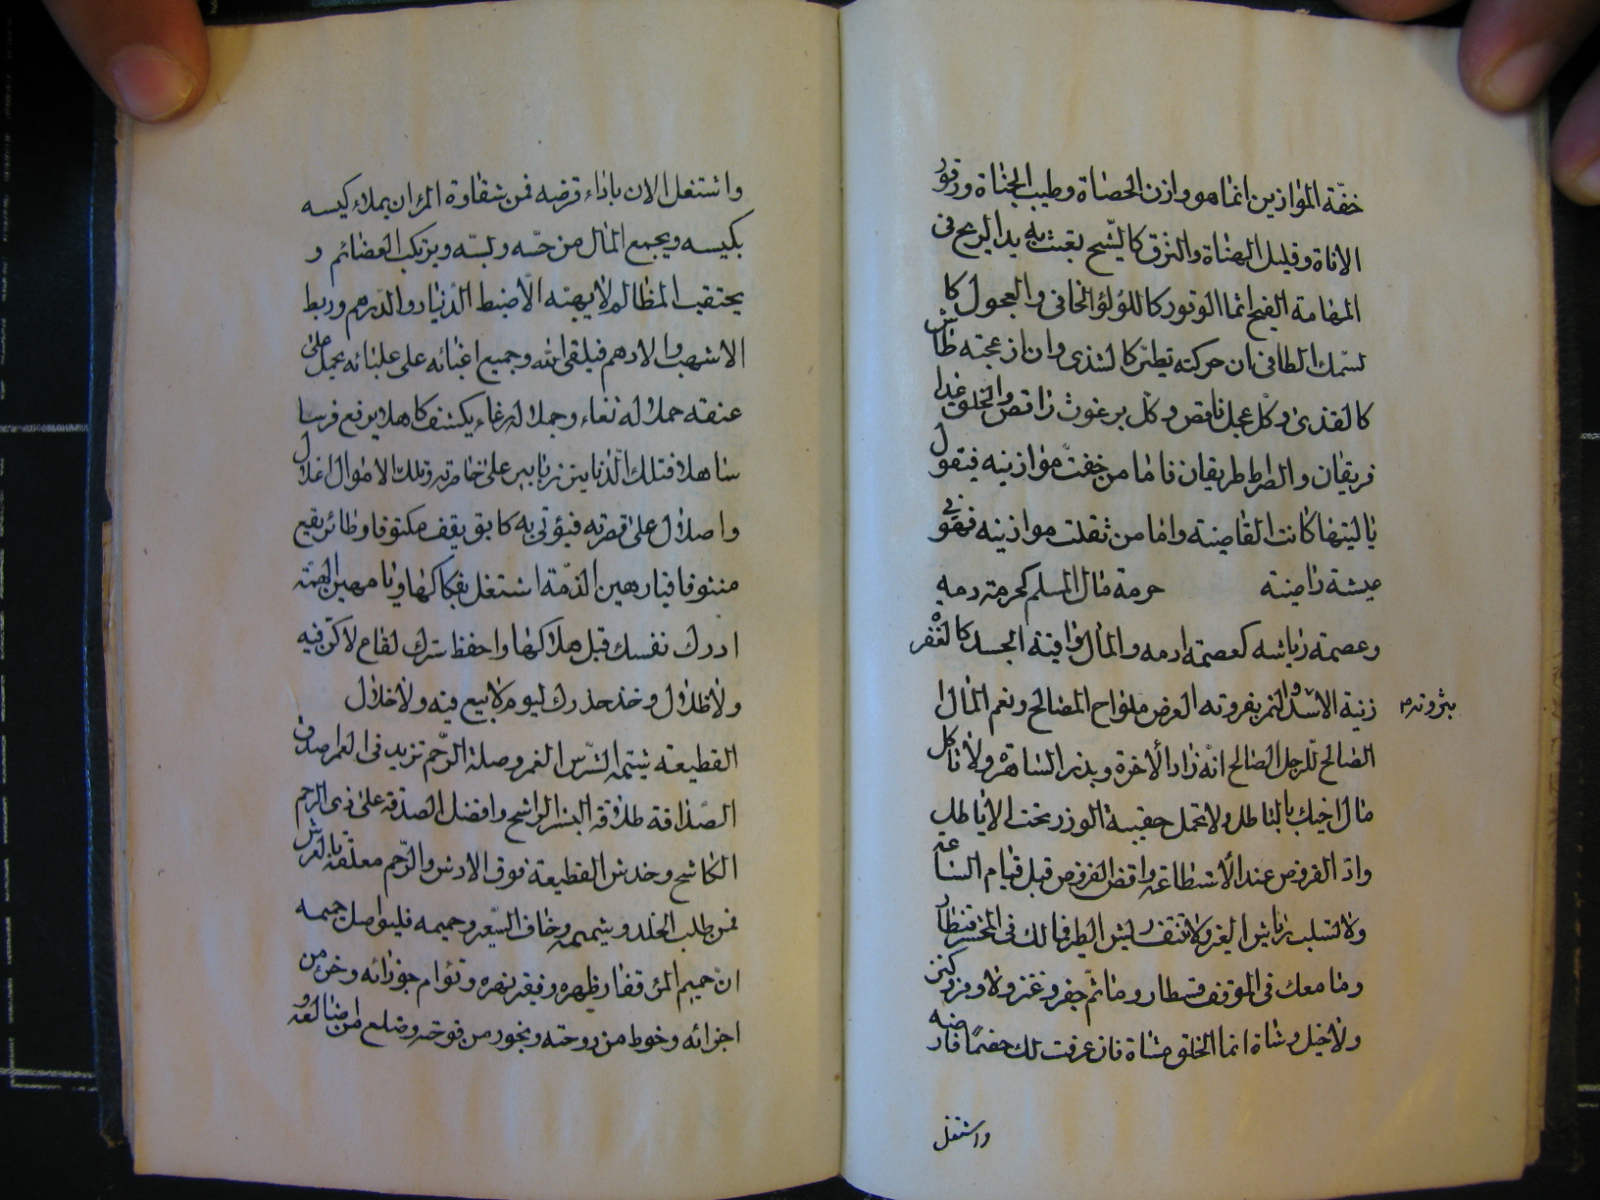 خفّة الموازين انما هو وازن الحصاة وطيب الجناة ورقور
الاناة وقليل الهناة والنزق كالشيح تعبث به يد الريح فى
المهامة الفيح انما الوقور كاللؤلؤ الخافى والعجول كا
لسمك الطافى ان حركته يطير كالشذى وان ازعجته طاش
كالقذى وكل عجل ناقص وكل برغوث راقص والخلق غدا
فريقان والصراط طريقان فاما من خفت موازينه فيقول
ياليتها كانت القاضية واما من ثقلت موازينه فهو فى
عيشة راضية حرمة مال المسلم كحرمة دمه
وعصمة رياشه كعصمة ادمه والمال واقية الجسد كالغفر
زينة الاسد والنمر بفروته العرض ملواح المصالح ونعم المال
بثروته
الصالح للرجل الصالح انه زاد الآخرة وبذر الساهرة ولا تاكل
مال اخيك بالباطل ولا تحمل حقيبة الوزر تحت الاياطل
وادّ القروض عند الاستطاعة واقض الفروض قبل قيام الساعة
ولا تسلب رياش الغير ولا تنتف ريش الطير فمالك فى المحشر قنطار
وما معك فى الموقف قسطار وما ثم جفر وعنز ولا وفر وكنز
ولا خيل وشاة انما الخلق مشاة فان عرفت لك خصمًا فارضه
واشتغل
واشتغل الان باداء قرضه فمن شقاوة المرء ان يملاء كيسه
بكيسه ويجمع المال من حسّه وبسّه ويرتكب العضائم و
يحتقب المظالم لا يهمّه الا ضبط الدنيار والدرهم وربط
الاشهب والادهم فيلقى الله وجميع اغبائه على علبائه يحمل على
عنقه حملا له ثغاء وجملا له رغاء يكشف كاهلا يرفع فرسا
ساهلا فتلك الدنانير زنابير على خاصرته وتلك الاموال اغلال
واصلال على قصرته فيؤتى به كابق يقف مكتوفا وطائر يقع
منتوفا فيا رهين الذمّة اشتغل بفكاكها ويا مهين الهمّة
ادرك نفسك قبل هلاكها واحفظ سرك لقاع لا كنّ فيه
ولا ظلال وخذ حذرك ليوم لا بيع فيه ولا خلال
القطيعة شيمة الشرس الغمر وصلة الرحم تزيد فى العمر صدق
الصداقة طلاقة البشر الراشح وافضل الصدقة على ذى الرحم
الكاشح وخدش القطيعة فوق الارش والرحم معلقة بالعرش
فمن طلب الخلد وشميمه وخاف السعير وحميمه فليواصل حميمه
ان حميم المرء فقار ظهره وفيقة نهره وتؤام جوزائه وجزء من
اجزائه وخوط من دوحته وبخور من فوحته وضلع من اضالعه و